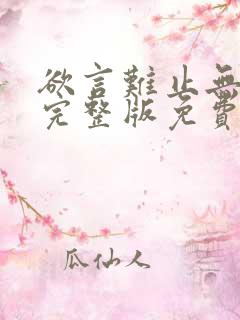 欲言難止無
完整版免費
瓜仙人